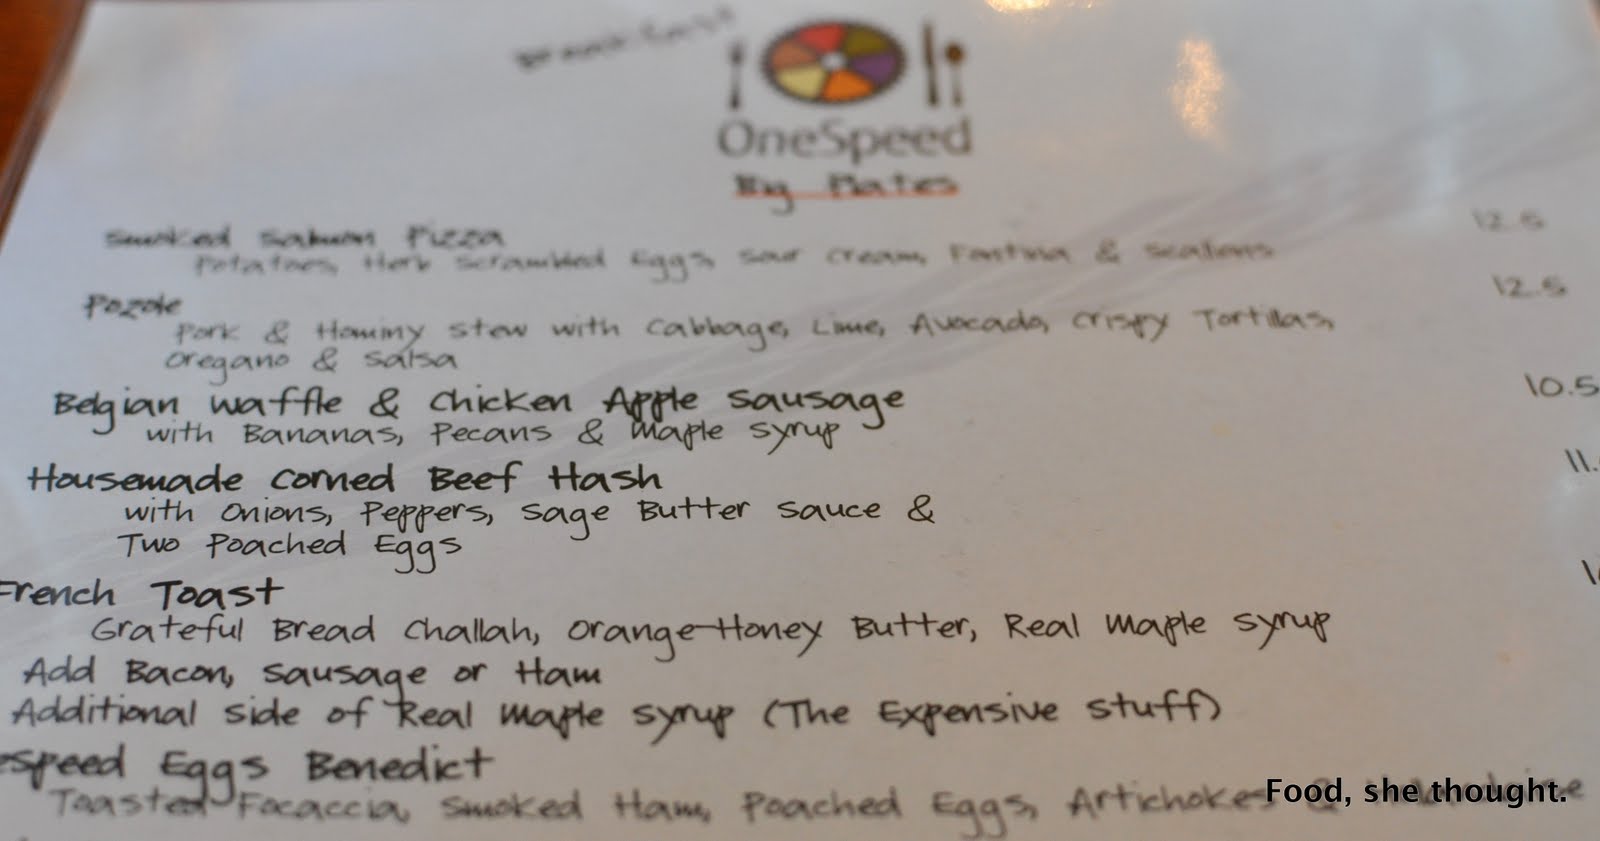 Breakfast
OneSpeed
By Plates
Smoked Salmon Pizza 12.5
Potatoes, Herb Scrambled Eggs, Sour Cream, Fontina & Scallions
Pozole 12.5
Pork & Hominy Stew with Cabbage, Lime, Avocado, Crispy Tortillas,
Oregano & Salsa
Belgian Waffle & Chicken Apple Sausage 10.5
with Bananas, Pecans & Maple Syrup
Housemade Corned Beef Hash 11.
with Onions, Peppers, Sage Butter Sauce &
Two Poached Eggs
French Toast
Grateful Bread Challah, Orange-Honey Butter, Real Maple Syrup
Add Bacon, Sausage or Ham
Additional Side of Real Maple Syrup (The Expensive Stuff)
eSpeed Eggs Benedict
Toasted Focaccia, Smoked Ham, Poached Eggs, Artichokes &
Food, she thought.